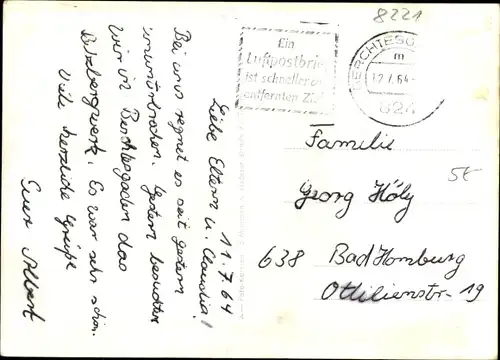 8221
Ein
Luftpostbrief
ist schneller am
entfernten Ziel
BERCHTESG
m
12.7.64
824
11.7.64
Liebe Eltern u. Claudia!
Bei uns regnet es seit gestern
ununterbrochen. Gestern besuchten
wir in Berchtesgaden das
Salzbergwerk. Es war sehr schön.
Viele herzliche Grüße
Euer Albert
Familie
Georg Höly
638 Bad Homburg
Ottilienstr. 19